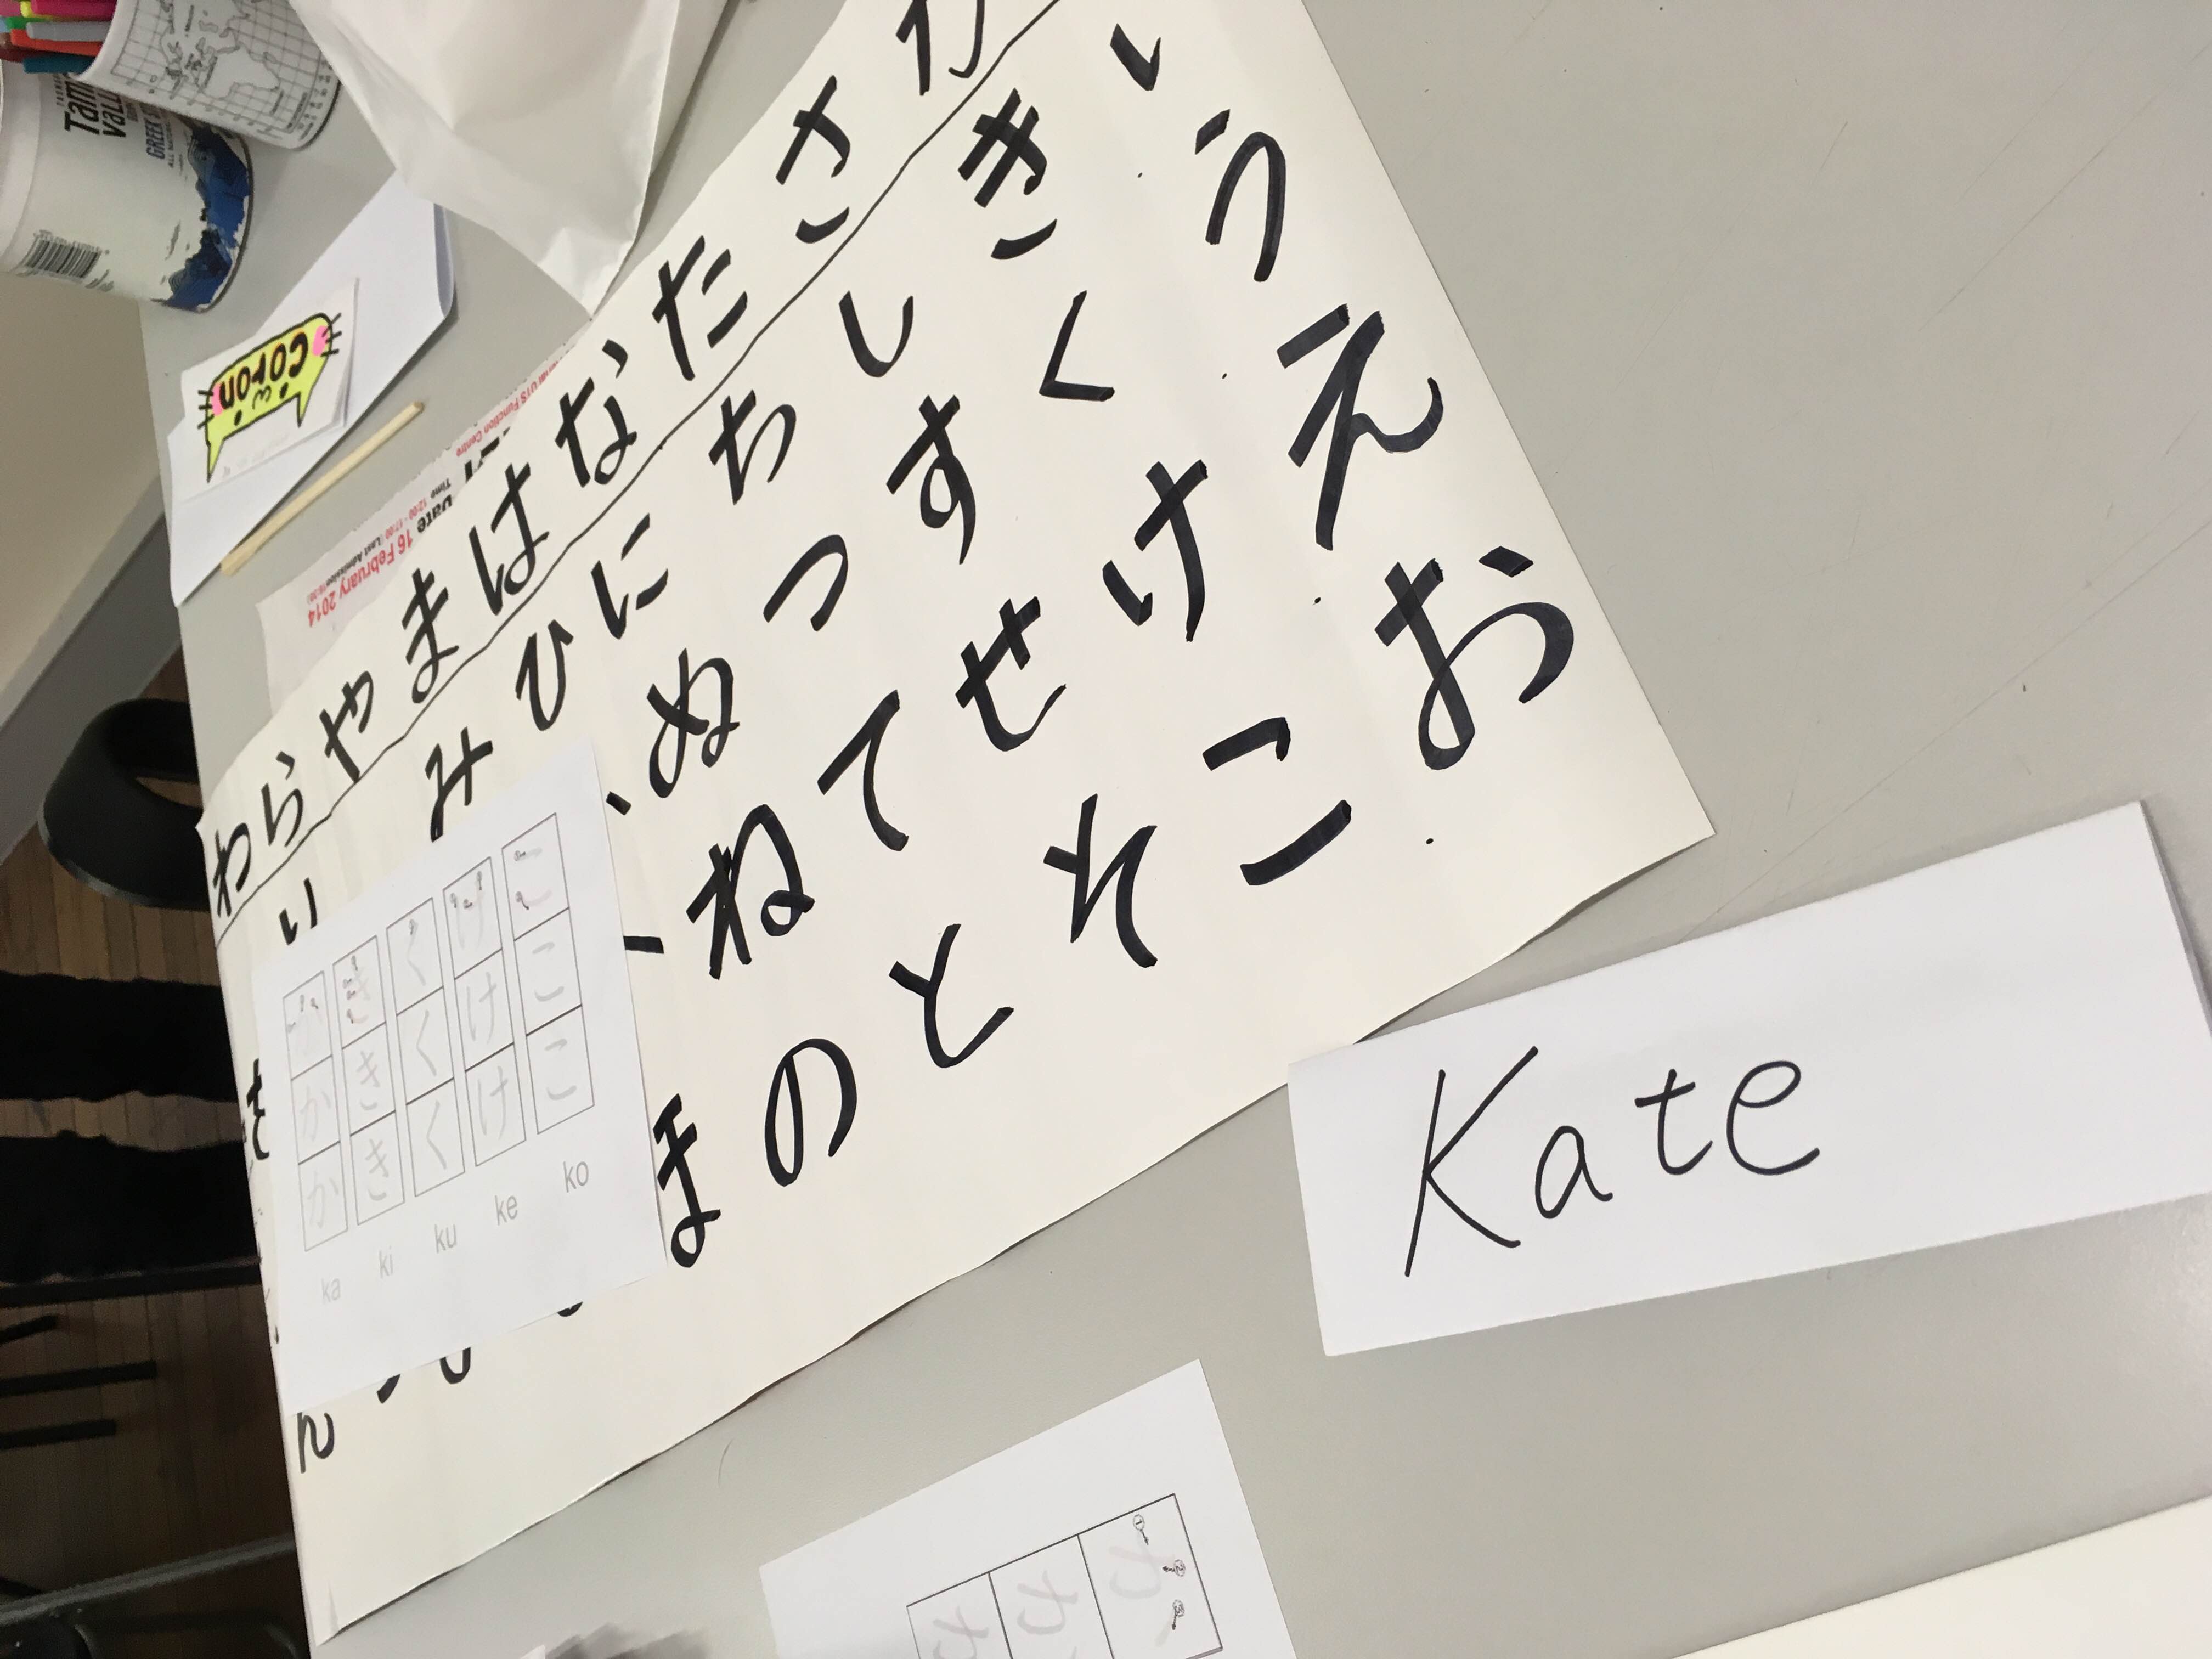 いうえお
かきくけこ
さしすせそ
たちつてと
なにぬねの
はひほ
まみ
や
らり
わ
ん
Kate
かかか ka
ききき ki
くくく ku
けけけ ke
こここ ko
coron
UTS Function Centre
Date 16 February 2014
Time 12:00 - 17:00 (Last Admission
GREEK